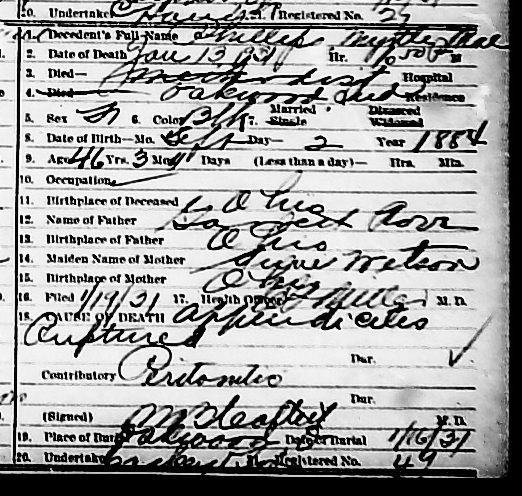 20. Undertaker 21. Registered No. 2
1. Decedent's Full Name Phillips Myrtle Mae
2. Date of Death Jan 13 1931 Hr. 10 50 P M
3. Died— Methodist Hospital
4. Died— Oakwood Residence
5. Sex F 6. Color Blk 7. Married Single Divorced Widowed
8. Date of Birth—Mo. Sept Day— 2 Year 1884
9. Age 46 Yrs. 3 Mo. Days (Less than a day)— Hrs. Min.
10. Occupation
11. Birthplace of Deceased Ohio
12. Name of Father
13. Birthplace of Father Ohio
14. Maiden Name of Mother Watson
15. Birthplace of Mother Ohio
16. Filed 1/19/31 17. Health Officer Miller M. D.
18. CAUSE OF DEATH Appendicites
Ruptured
Dur. ✓
Contributory Peritonitis
Dur.
(Signed) M. D.
19. Place of Burial Oakwood Date of Burial 1/16/31
20. Undertaker 21. Registered No. 49